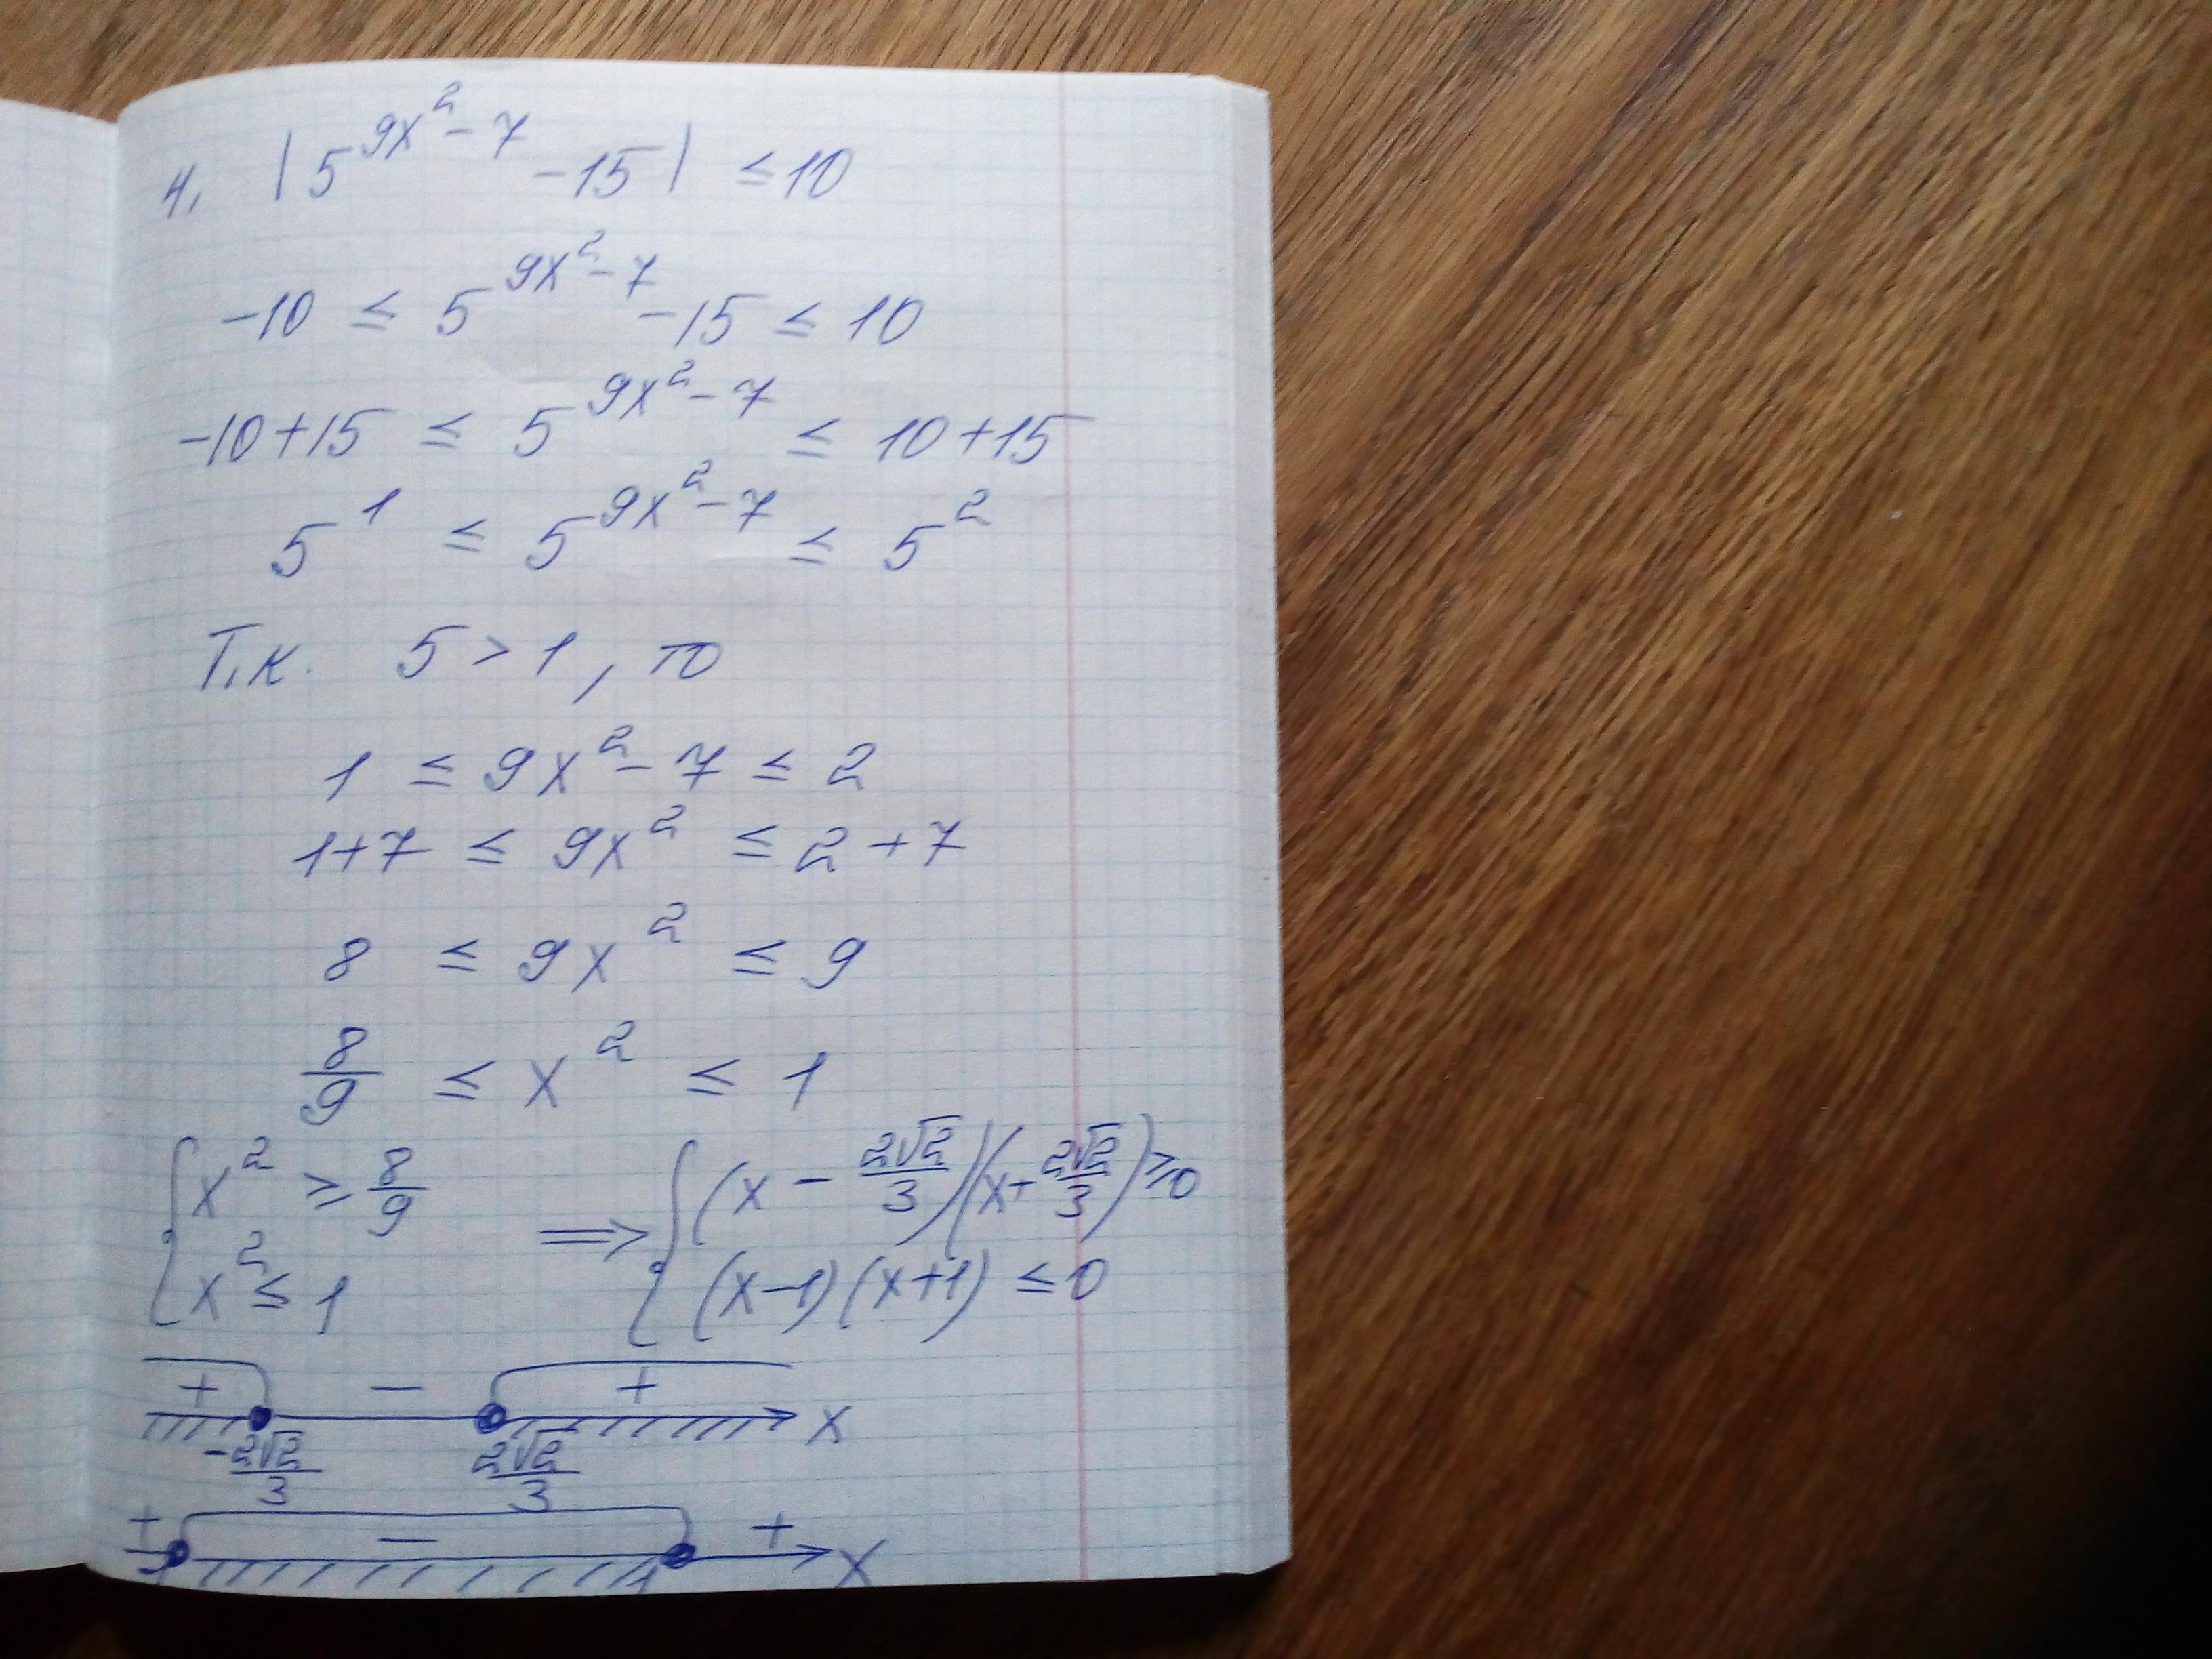 4. |5^(9x²-7) -15| ≤ 10
-10 ≤ 5^(9x²-7) -15 ≤ 10
-10+15 ≤ 5^(9x²-7) ≤ 10+15
5^1 ≤ 5^(9x²-7) ≤ 5^2
Т.к. 5 > 1, то
1 ≤ 9x² - 7 ≤ 2
1+7 ≤ 9x² ≤ 2+7
8 ≤ 9x² ≤ 9
8/9 ≤ x² ≤ 1
{ x² ≥ 8/9 ⟹ { (x - 2√2/3)(x + 2√2/3) ≥ 0
x² ≤ 1 (x-1)(x+1) ≤ 0
+ − + x
-2√2/3 2√2/3
+ − + x
1